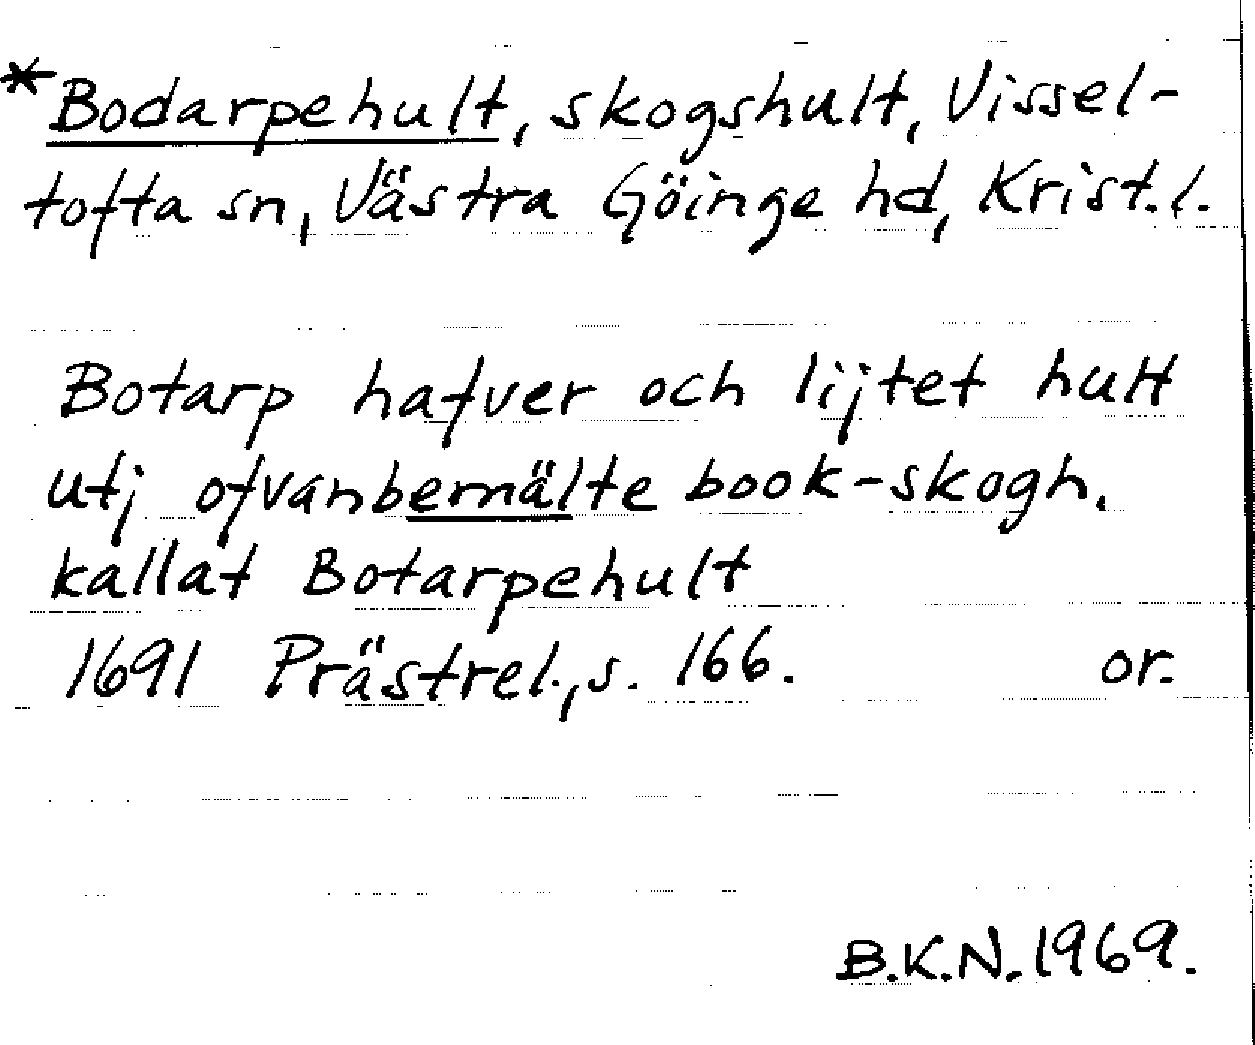 *Bodarpehult, skogshult, Vissel-
tofta sn, Västra Göinge hd, Krist. l.
Botarp hafver och lijtet hult
utj ofvanbemälte book-skogh.
kallat Botarpehult
1691 Prästrel., s. 166. or.
B.K.N. 1969.